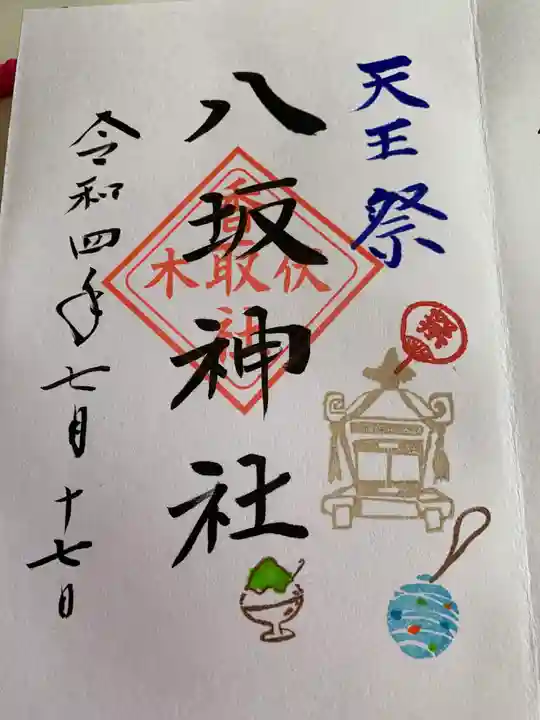 天王祭
祭
八坂神社
香取社
伏木
令和四年七月十七日